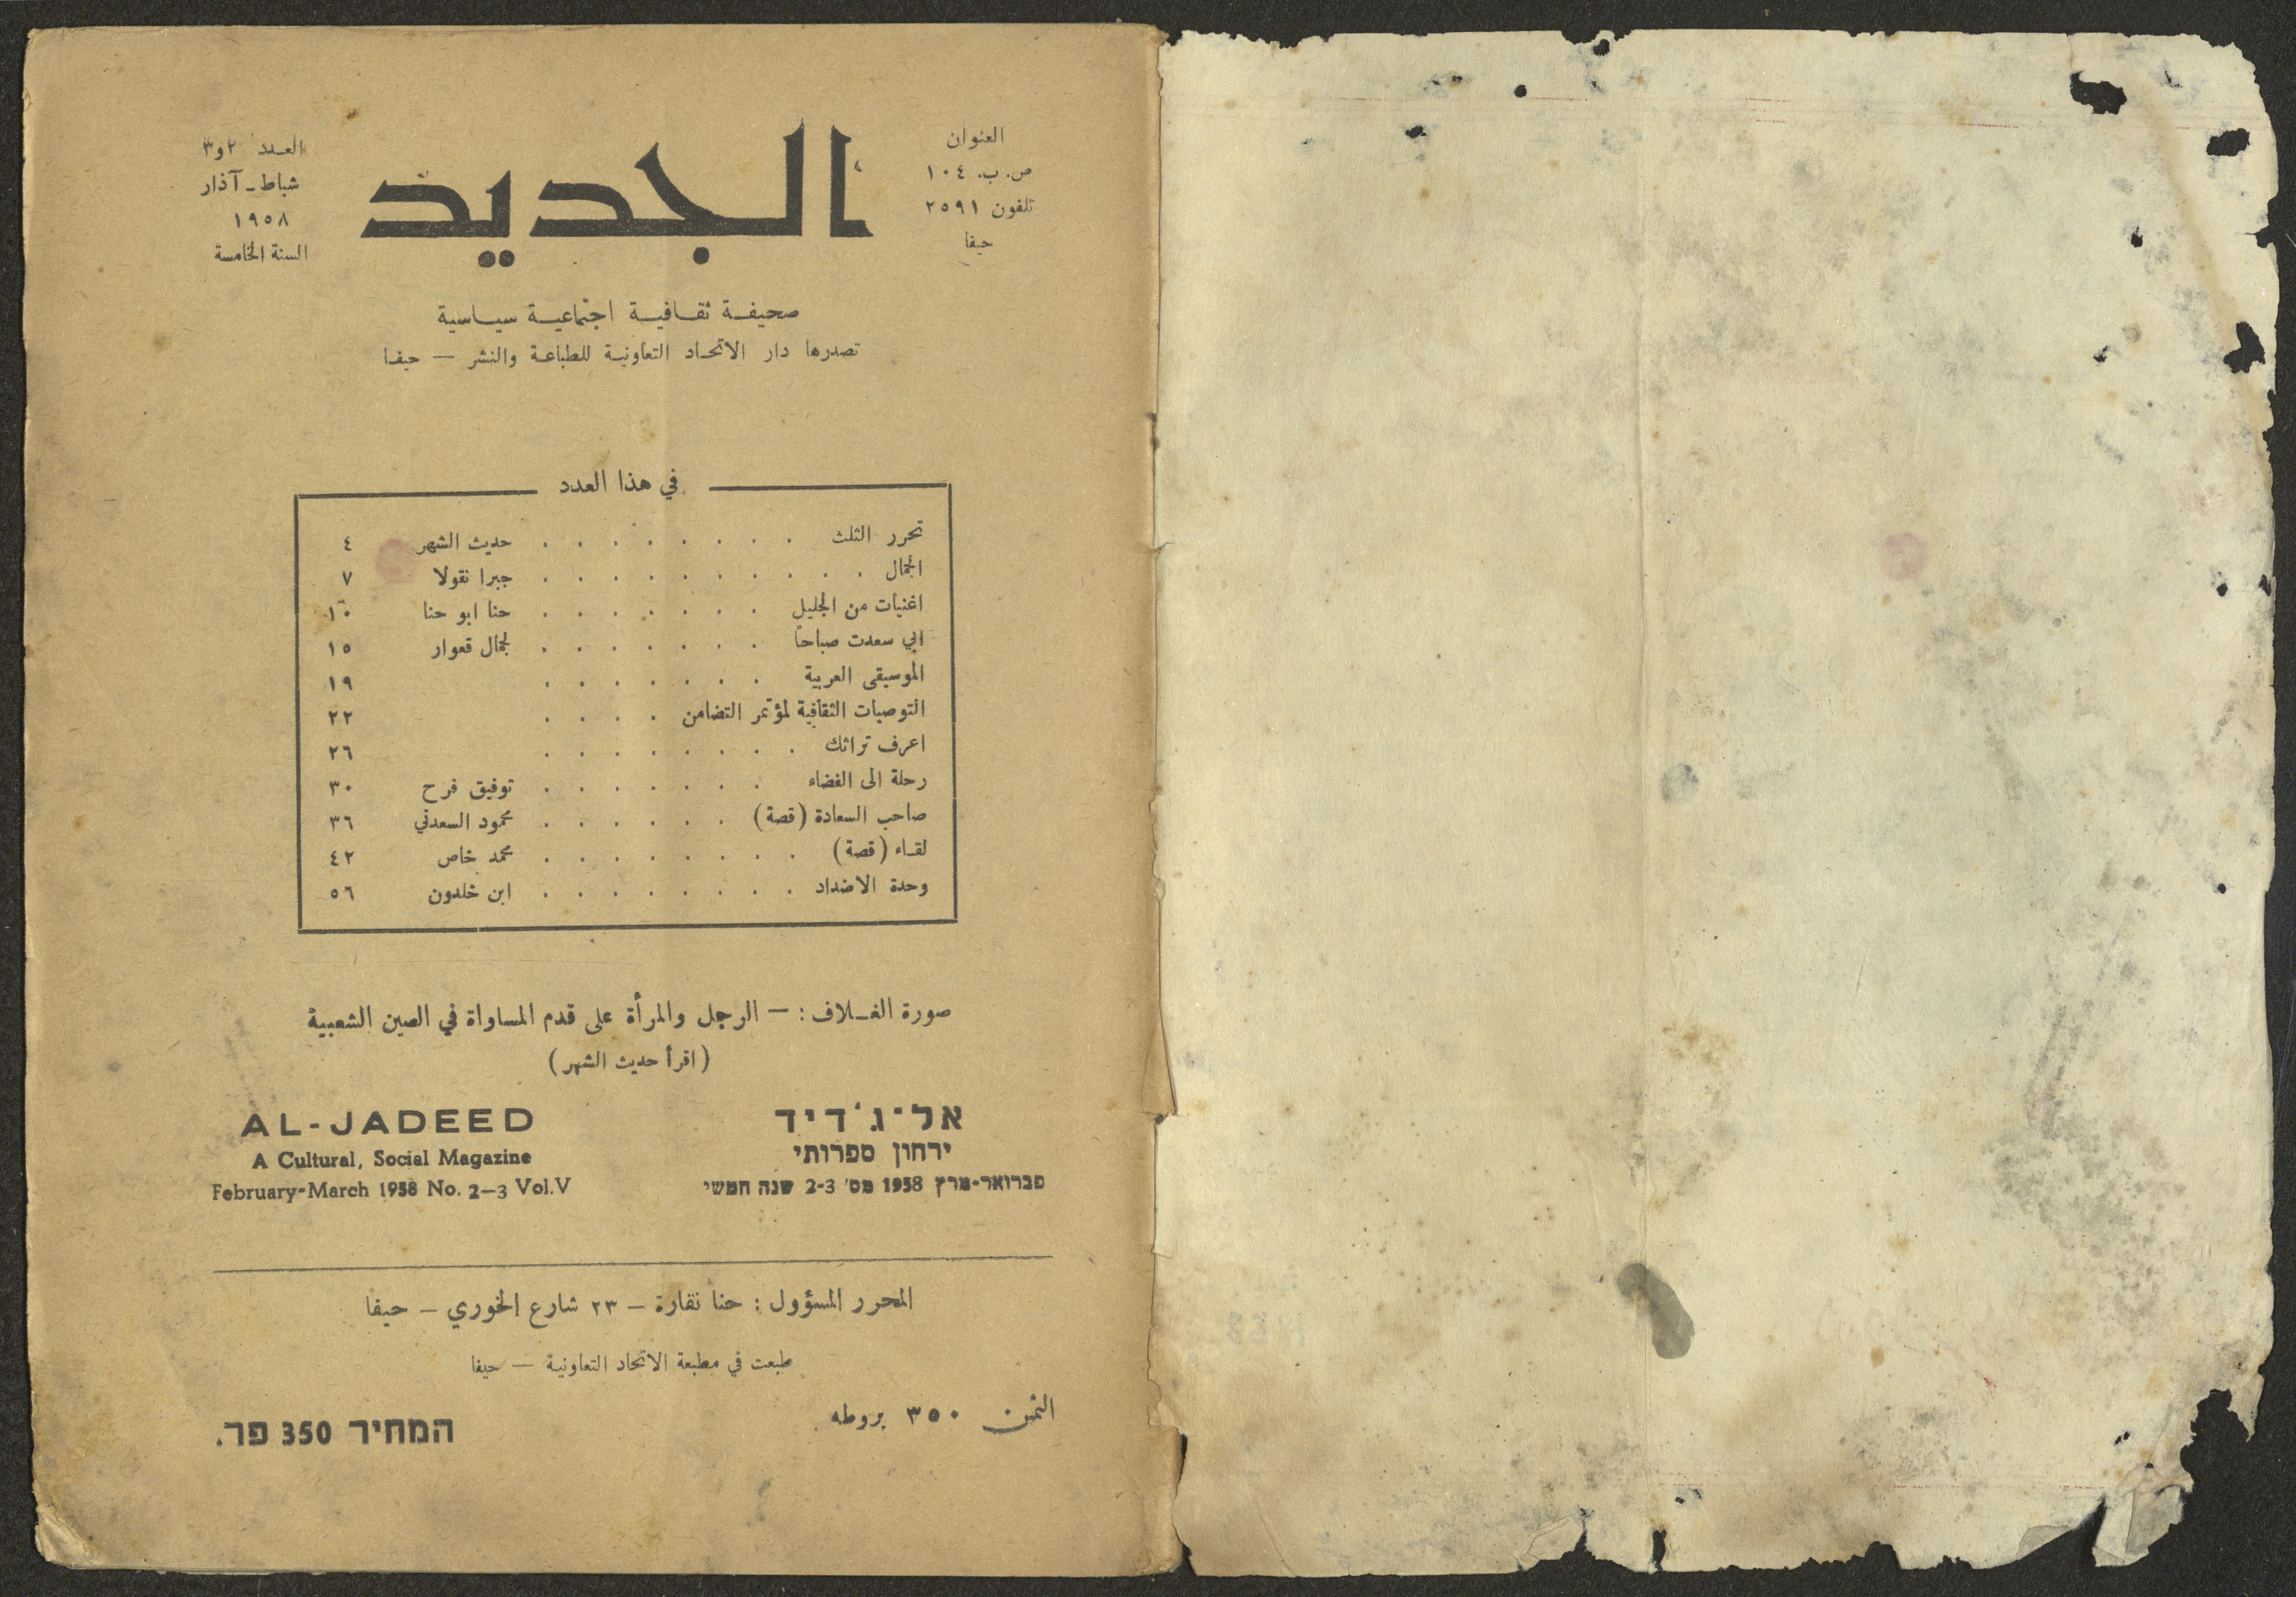 العنوان
ص. ب. ١٠٤
تلفون ٢٥٩١
حيفا
الجديد
العدد ٢ و٣
شباط ـ آذار
١٩٥٨
السنة الخامسة
صحيفة ثقافية اجتماعية سياسية
تصدرها دار الاتحاد التعاونية للطباعة والنشر — حيفا
في هذا العدد
تحرر الثلث . . . . . . . . حديث الشهر ٤
الجمال . . . . . . . . . . جبرا نقولا ٧
اغنيات من الجليل . . . . . . . حنا ابو حنا ١٠
ابي سعدت صباحاً . . . . . . . لجمال قعوار ١٥
الموسيقى العربية . . . . . . . ١٩
التوصيات الثقافية لمؤتمر التضامن . . . . ٢٢
اعرف تراثك . . . . . . . . ٢٦
رحلة الى الفضاء . . . . . . . توفيق فرح ٣٠
صاحب السعادة (قصة) . . . . . . محمود السعدني ٣٦
لقاء (قصة) . . . . . . . . محمد خاص ٤٢
وحدة الاضداد . . . . . . . . ابن خلدون ٥٦
صورة الغلاف : — الرجل والمرأة على قدم المساواة في الصين الشعبية
(اقرأ حديث الشهر)
אל־ג'דיד
ירחון ספרותי
פברואר-מרץ 1958 מס' 2-3 שנה חמשי
AL-JADEED
A Cultural, Social Magazine
February-March 1958 No. 2—3 Vol.V
المحرر المسؤول : حنا نقارة — ٢٣ شارع الخوري — حيفا
طبعت في مطبعة الاتحاد التعاونية — حيفا
الثمن ٣٥٠ بروطه
המחיר 350 פר.